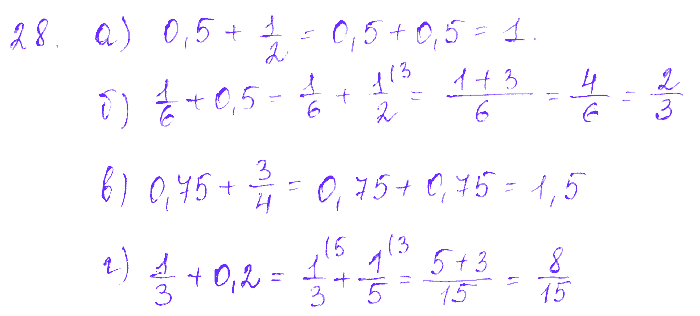 28. а) 0,5 + 1/2 = 0,5 + 0,5 = 1.
б) 1/6 + 0,5 = 1/6 + 1/2 (3 = (1+3)/6 = 4/6 = 2/3
в) 0,75 + 3/4 = 0,75 + 0,75 = 1,5
г) 1/3 + 0,2 = 1/3 (5 + 1/5 (3 = (5+3)/15 = 8/15